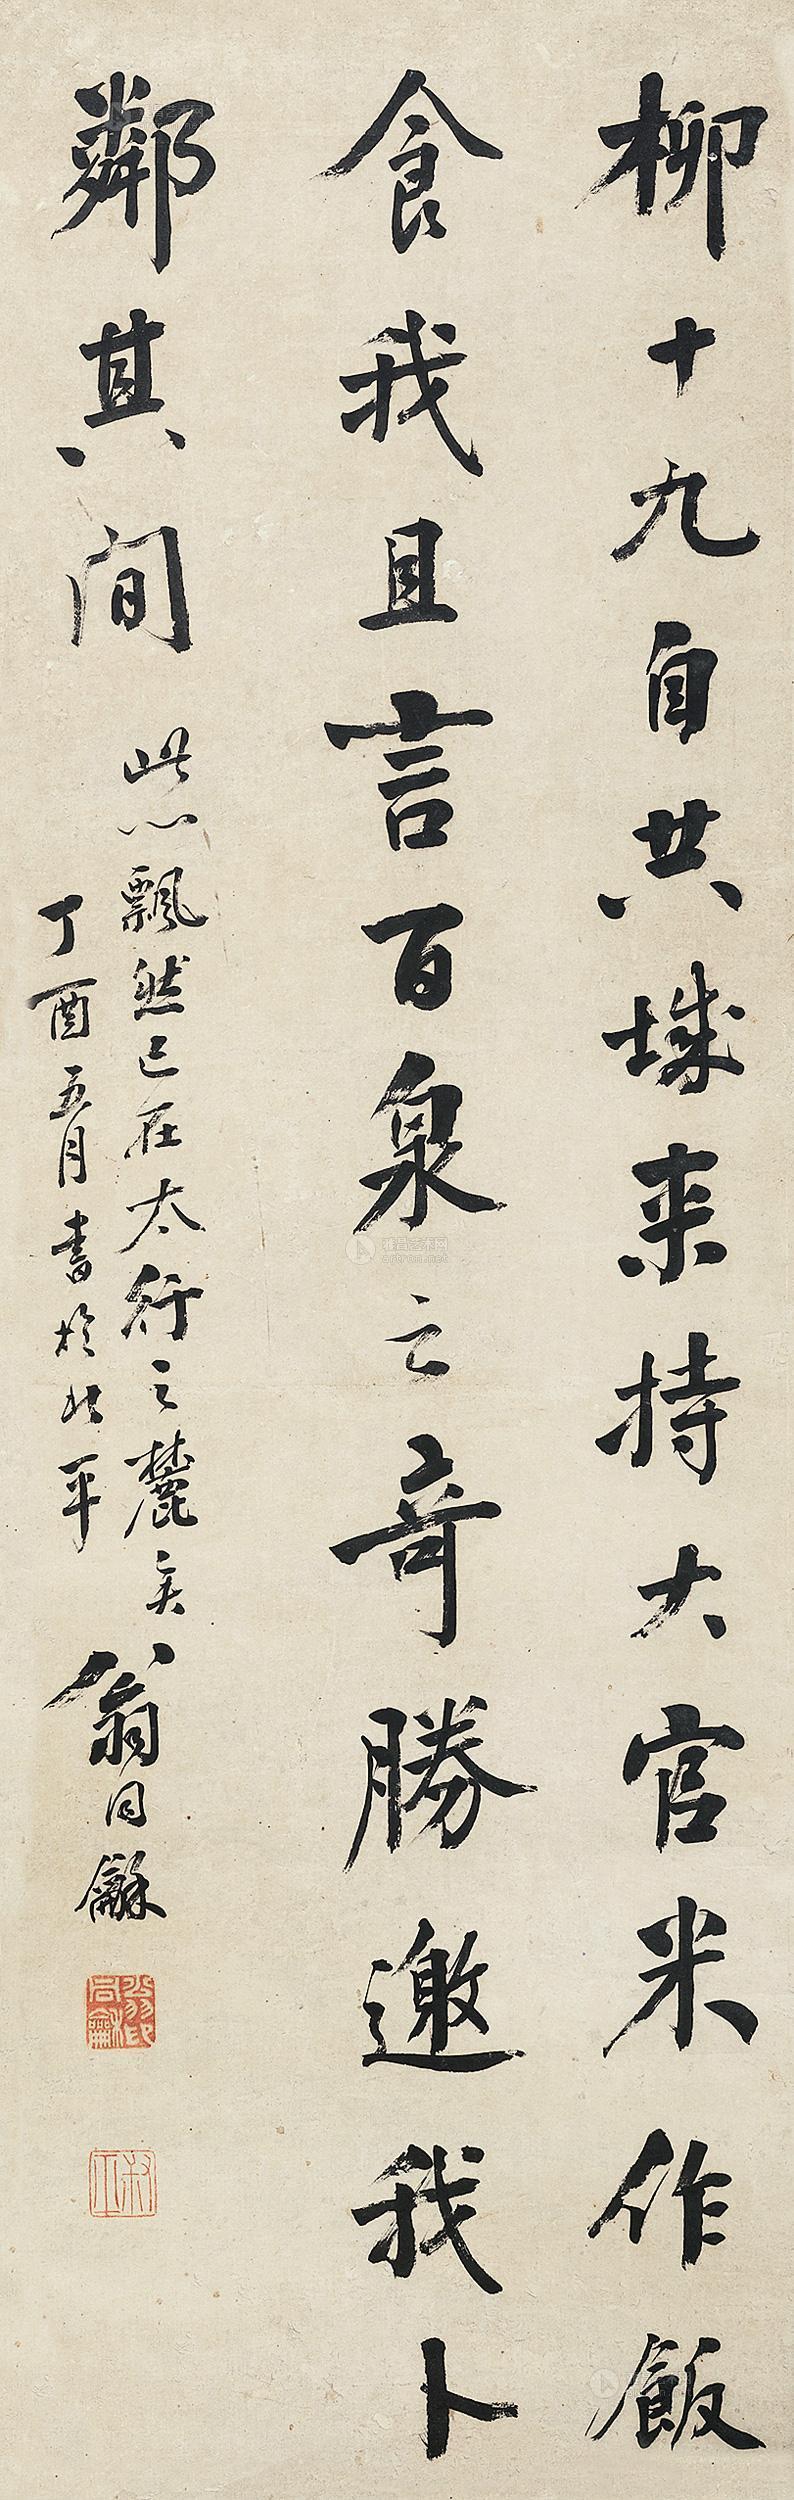 柳十九自共城来持大官米作飯
食我且言百泉之奇勝邀我卜
鄰其间
此心飄然已在太行之麓矣
丁酉五月書於北平
翁同龢
翁同龢印
叔平
雅昌艺术网
artron.net